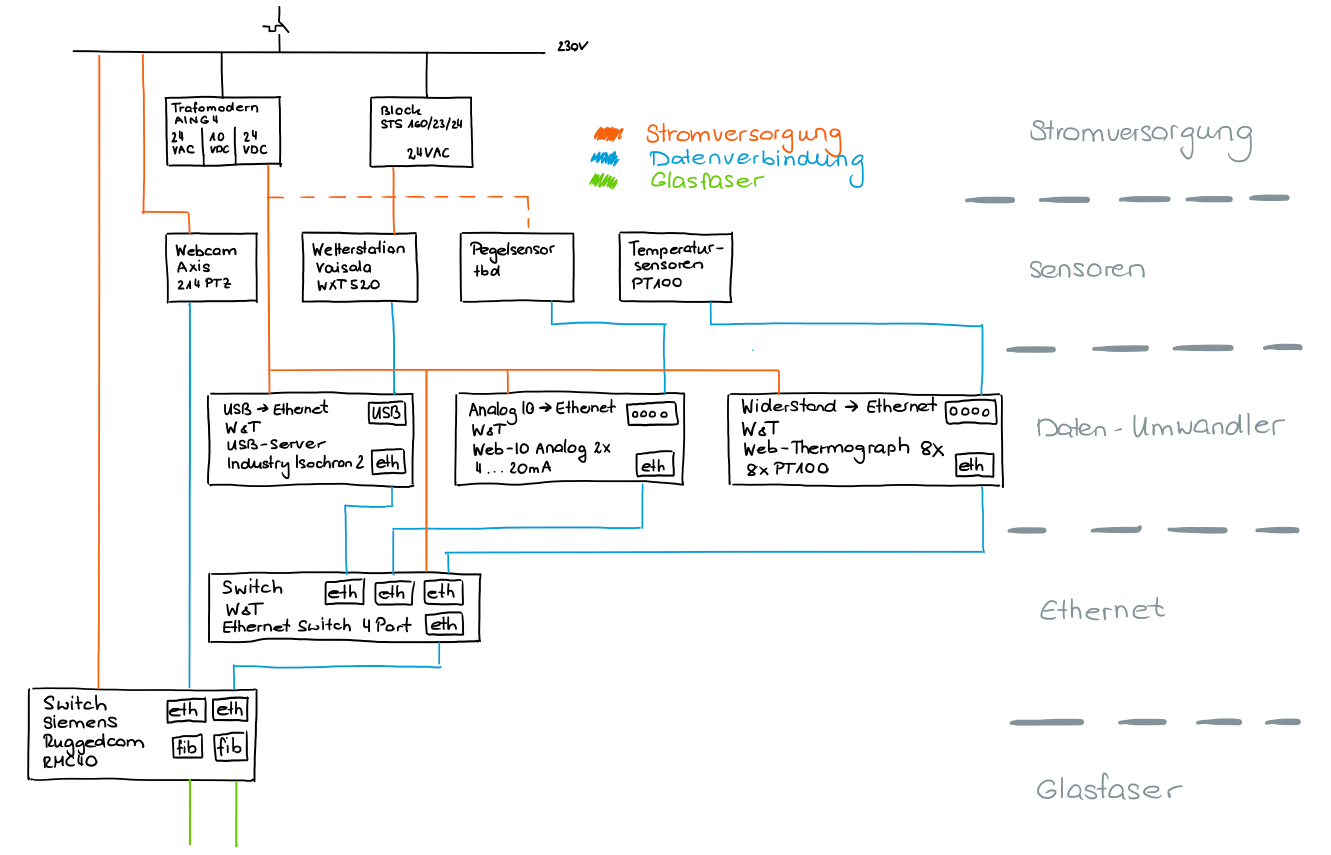 230V
Trafomodern
AING4
24 VAC
10 VDC
24 VDC
Block
STS 160/23/24
24VAC
Stromversorgung
Datenverbindung
Glasfaser
Stromversorgung
Webcam
Axis
214 PTZ
Wetterstation
Vaisala
WXT520
Pegelsensor
tbd
Temperatur-
sensoren
PT100
Sensoren
USB → Ethernet
W&T
USB-Server
Industry Isochron 2
USB
eth
Analog IO → Ethernet
W&T
Web-IO Analog 2x
4 ... 20mA
eth
Widerstand → Ethernet
W&T
Web-Thermograph 8x
8x PT100
eth
Daten-Umwandler
Switch
W&T
Ethernet Switch 4 Port
eth
eth
eth
eth
Ethernet
Switch
Siemens
Ruggedcom
RMC40
eth
eth
fib
fib
Glasfaser